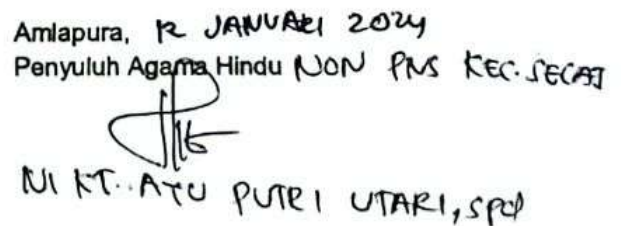 Amlapura, 12 JANUARI 2024
Penyuluh Agama Hindu NON PNS KEC. SELAT
NI KT. AYU PUTRI UTARI, SPd